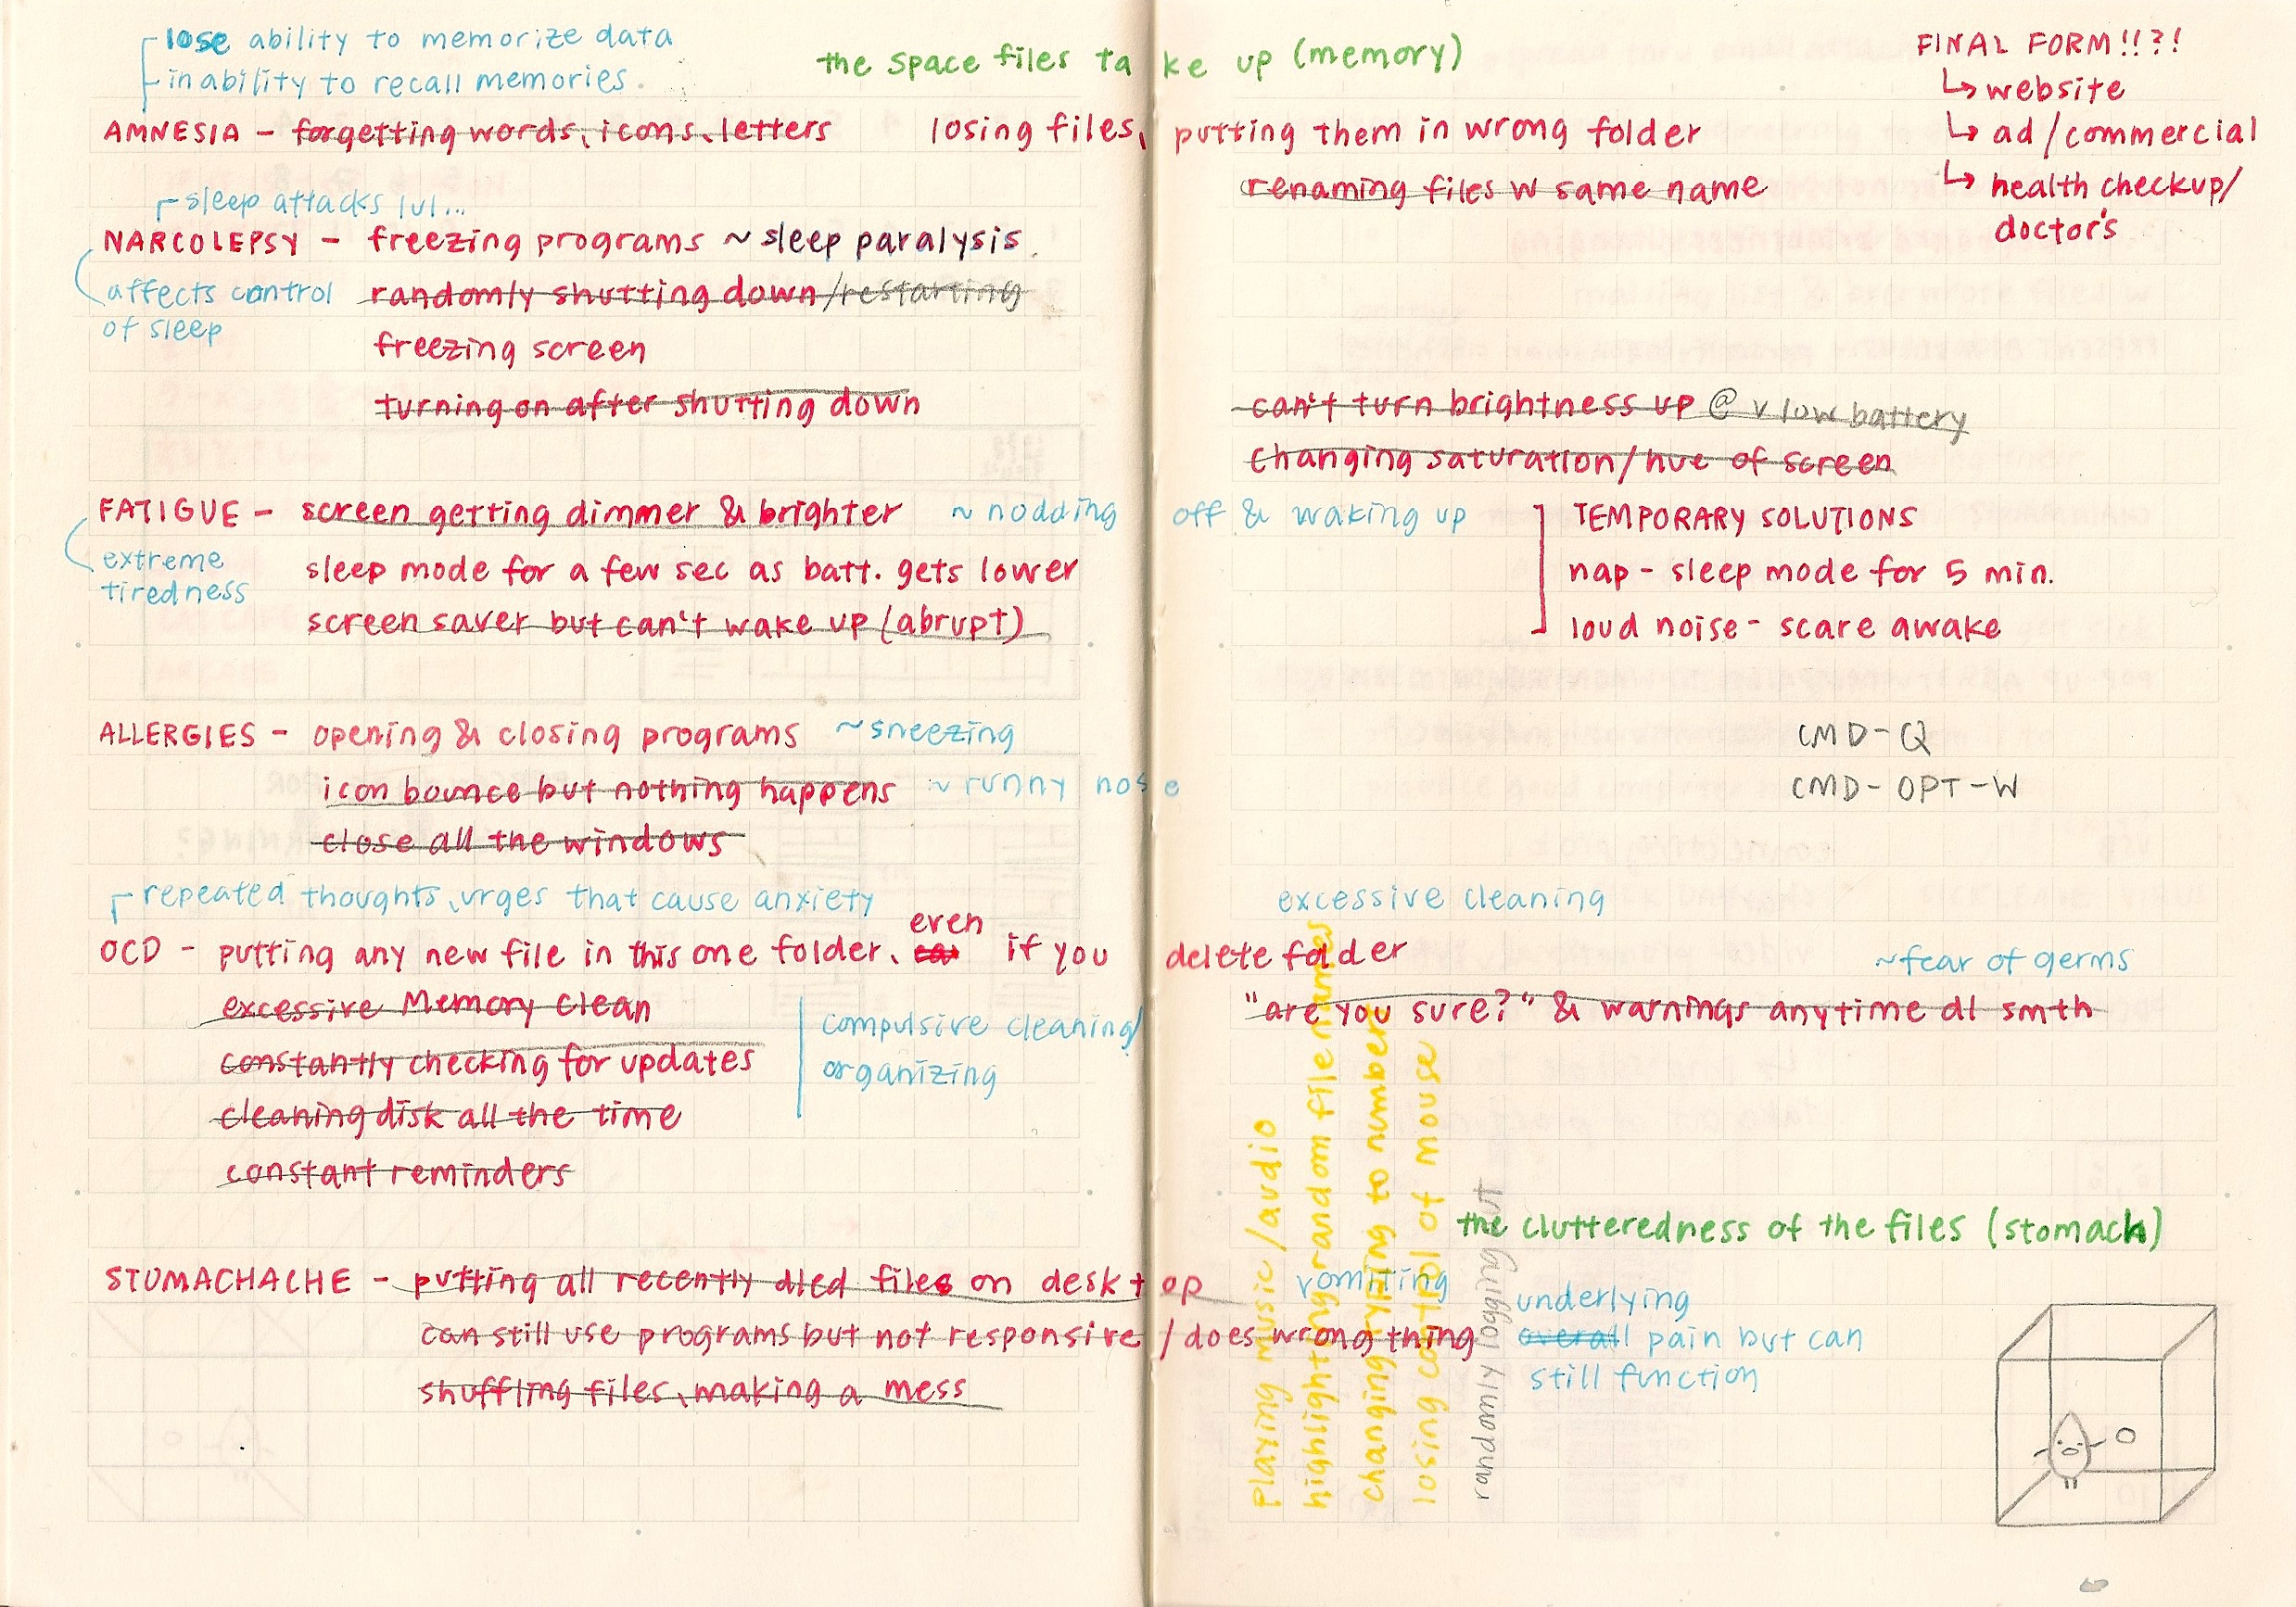 lose ability to memorize data
inability to recall memories.
the space files take up (memory)
AMNESIA - forgetting words, icons, letters
losing files, putting them in wrong folder
renaming files w same name
FINAL FORM!!?!
↳ website
↳ ad/commercial
↳ health checkup/
doctor's
sleep attacks lul...
NARCOLEPSY - freezing programs ~ sleep paralysis.
affects control
of sleep
randomly shutting down/restarting
freezing screen
turning on after shutting down
can't turn brightness up @ v low battery
changing saturation/hue of screen
FATIGUE - screen getting dimmer & brighter ~ nodding off & waking up
extreme
tiredness
sleep mode for a few sec as batt. gets lower
screen saver but can't wake up (abrupt)
TEMPORARY SOLUTIONS
nap - sleep mode for 5 min.
loud noise - scare awake
ALLERGIES - opening & closing programs ~sneezing
icon bounce but nothing happens ~ runny nose
close all the windows
CMD-Q
CMD-OPT-W
repeated thoughts, urges that cause anxiety
excessive cleaning
OCD - putting any new file in this one folder, even if you delete folder
~fear of germs
excessive Memory Clean
"are you sure?" & warnings anytime dl smth
constantly checking for updates
cleaning disk all the time
constant reminders
compulsive cleaning/
organizing
playing music/audio
highlighting random file names
changing typing to numbers
losing control of mouse
randomly logging out
the clutteredness of the files (stomach)
STOMACHACHE - putting all recently dled files on desktop
vomiting
can still use programs but not responsive/does wrong thing
underlying
overall pain but can
still function
shuffling files, making a mess